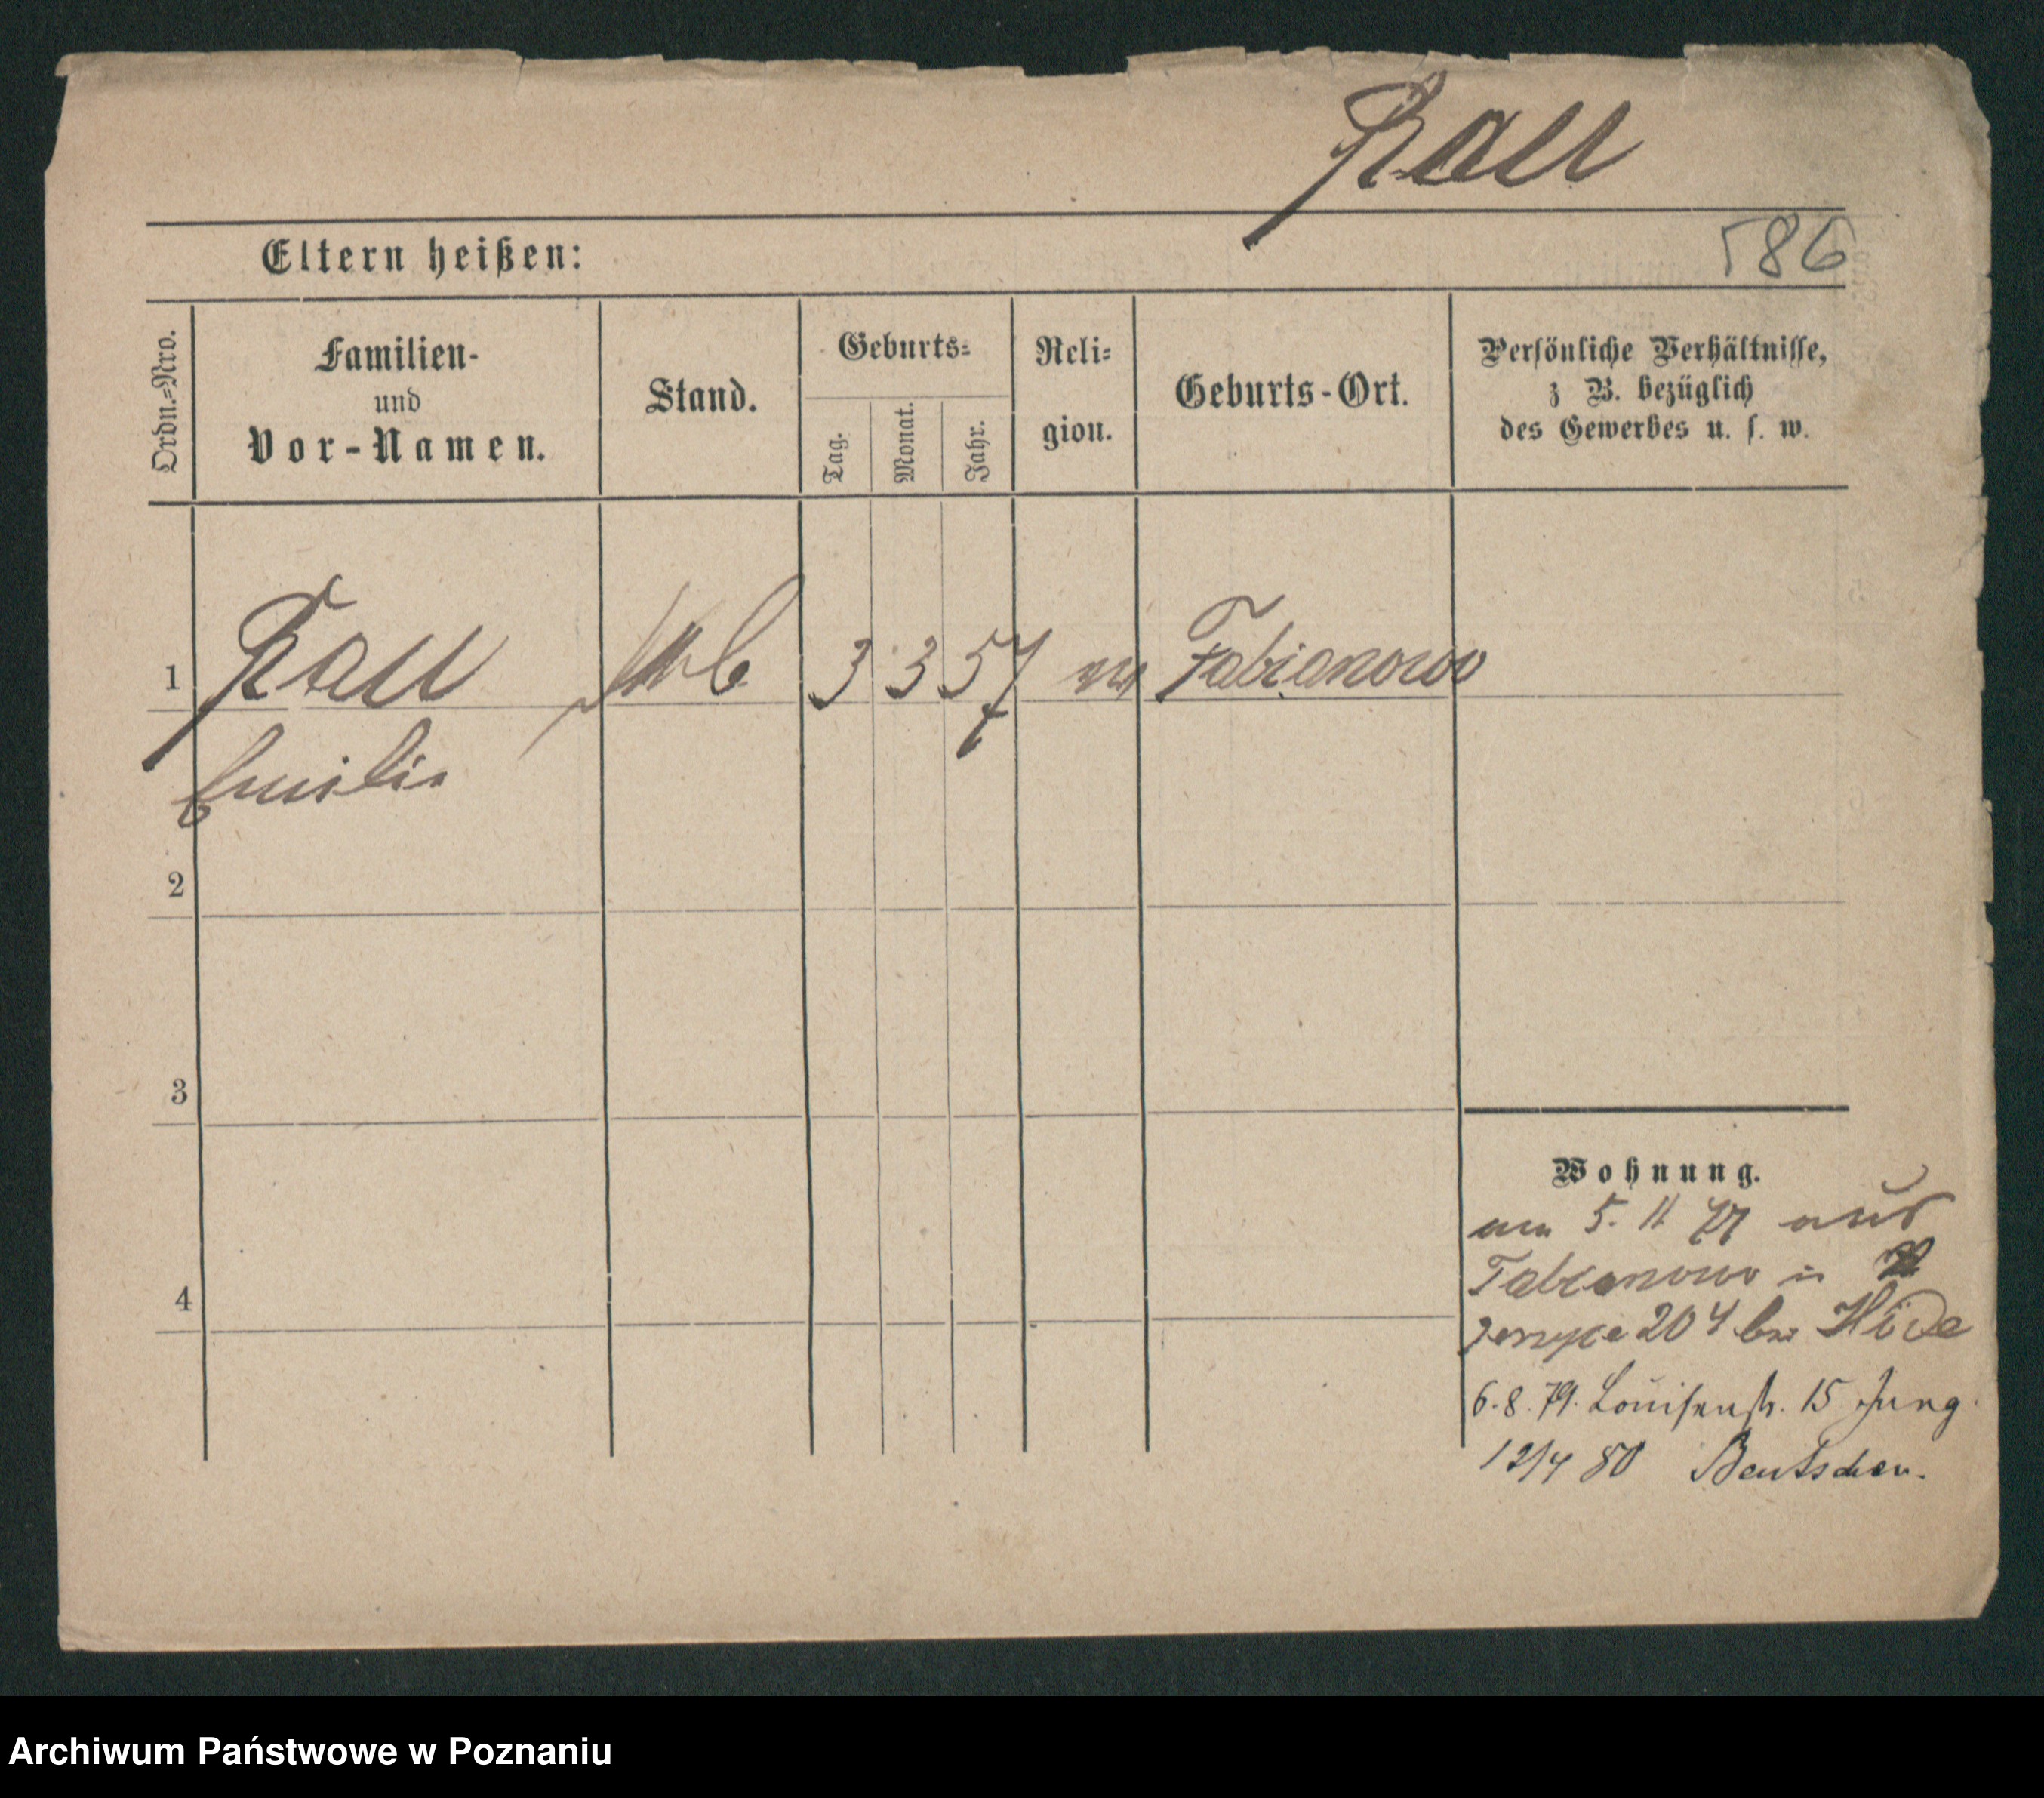 Rau
586
Eltern heißen:
Ordn.-Nro.
Familien-
und
Vor-Namen.
Stand.
Geburts-
Tag.
Monat.
Jahr.
Reli-
gion.
Geburts-Ort.
Persönliche Verhältnisse,
z B. bezüglich
des Gewerbes u. s. w.
1 Rau 3 3 57 Fabianowo
Emilie
2
3
4
Wohnung.
am 5. 11 77 aus
Fabianowo in
204 bei
6.8.79. Louisenstr. 15 Jung.
12/4 80 Bentschen.
Archiwum Państwowe w Poznaniu